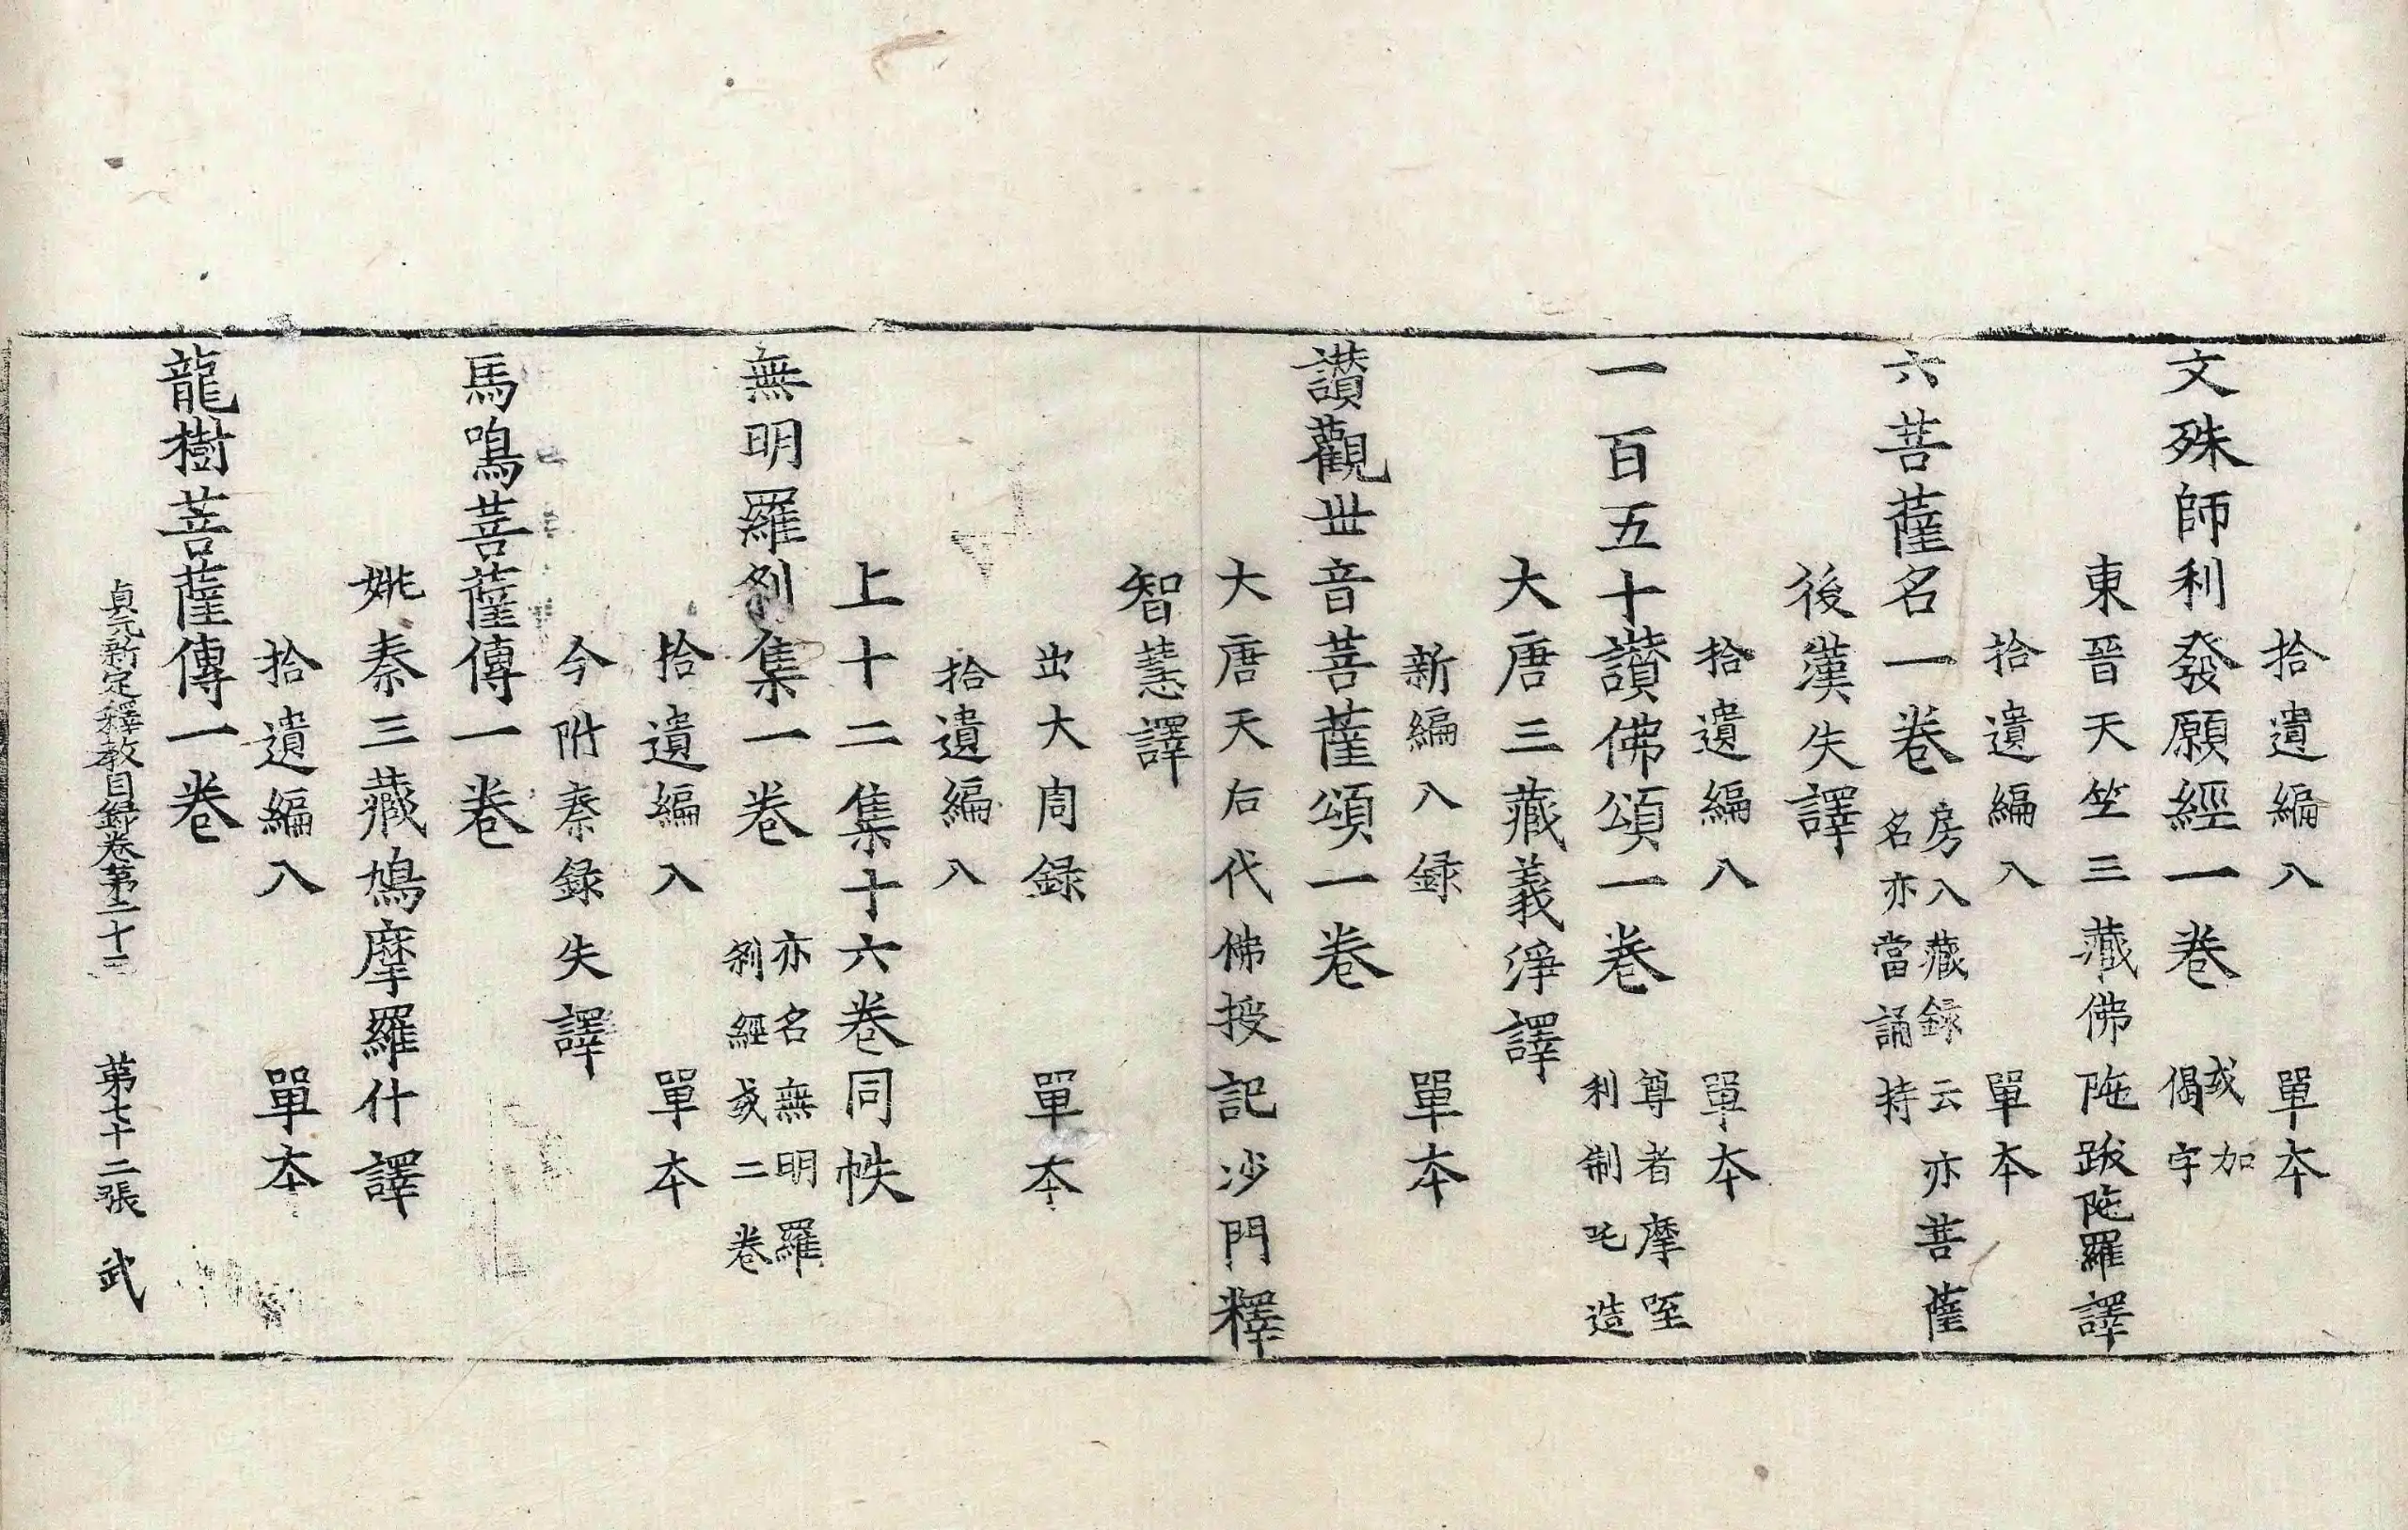 拾遺編入 單本
文殊師利發願經一卷 或加偈字
東晉天竺三藏佛陁跋陁羅譯
拾遺編入 單本
六菩薩名一卷 房入藏録云亦菩薩名亦當誦持
後漢失譯
拾遺編入 單本
一百五十讃佛頌一卷 尊者摩咥利制吒造
大唐三藏義淨譯
新編入録 單本
讃觀世音菩薩頌一卷
大唐天后代佛授記沙門釋
智慧譯
出大周録 單本
拾遺編入
上十二集十六卷同帙
無明羅刹集一卷 亦名無明羅刹經或二卷
拾遺編入 單本
今附秦録失譯
馬鳴菩薩傳一卷
姚秦三藏鳩摩羅什譯
拾遺編入 單本
龍樹菩薩傳一卷
貞元新定釋教目録卷第二十三 第七十二張 武